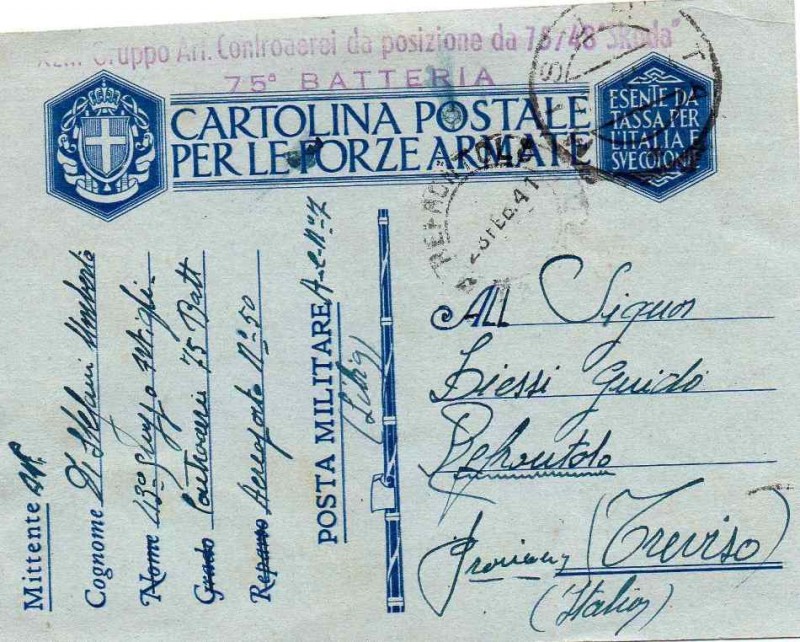 Gruppo Art. Controaerei da posizione da 75/48 "Skoda"
75ª BATTERIA
CARTOLINA POSTALE
PER LE FORZE ARMATE
ESENTE DA
TASSA PER
L'ITALIA E
SVE COLONIE
REFRONTOLO
FEB.41
Mittente
Cognome Stefani Umberto
Nome 43º Gruppo Artigli-
Grado Controaerei 75 Batt
Reparto Aeroporto Nº 50
POSTA MILITARE A-C-Nº 7
(Libia)
All Signor
Liessi Guido
Refrontolo
(Treviso)
(Italia)